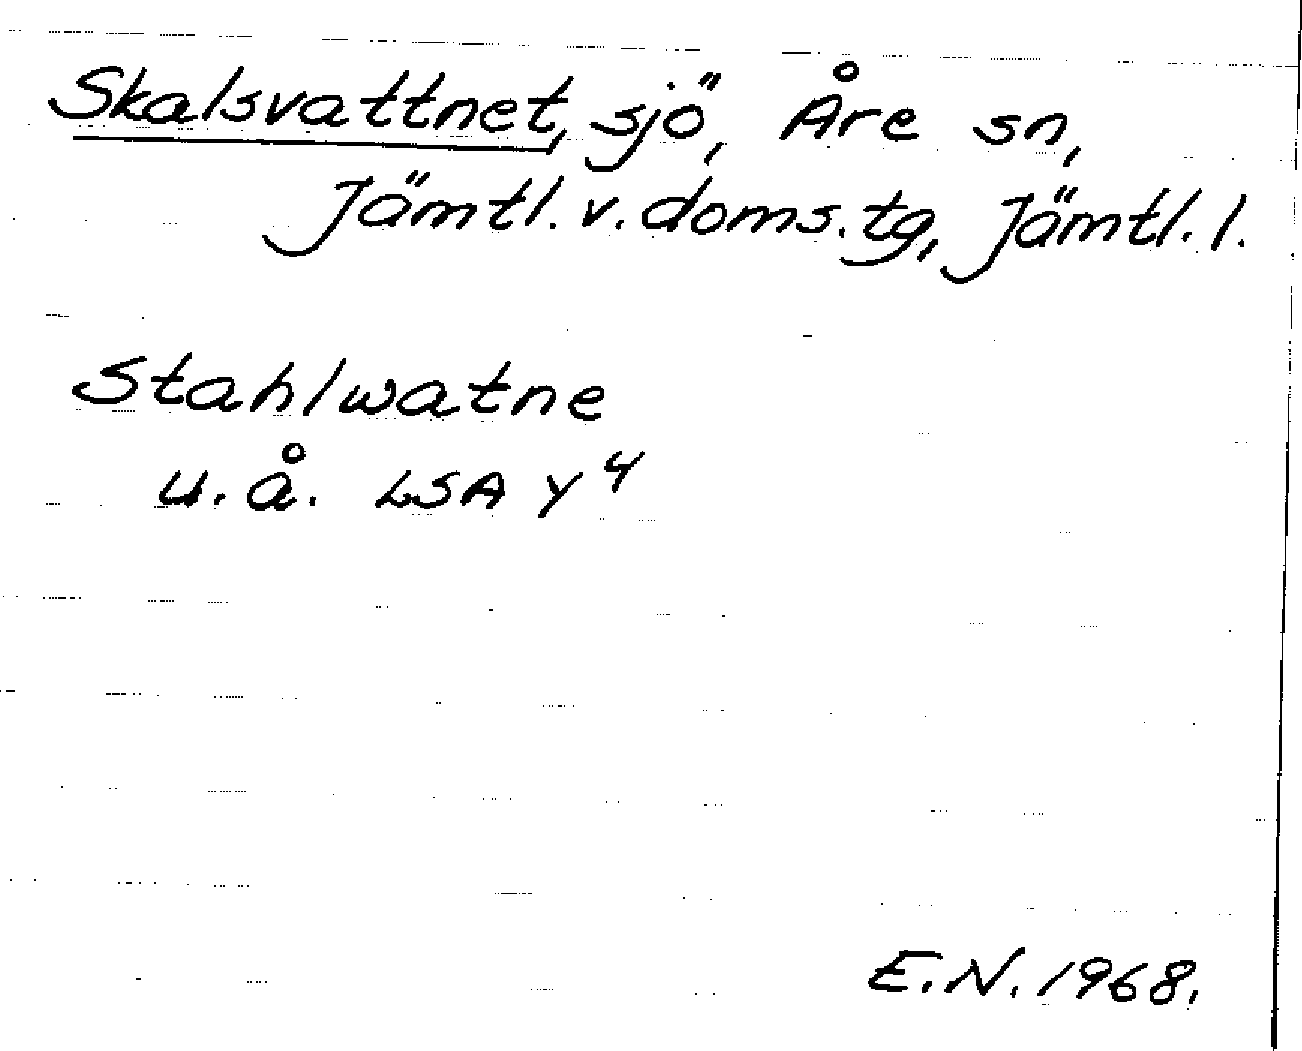 Skalsvattnet, sjö, Åre sn,
Jämtl. v. doms. tg, Jämtl. l.
Stahlwatne
u. å. LSA Y 4
E.N. 1968.